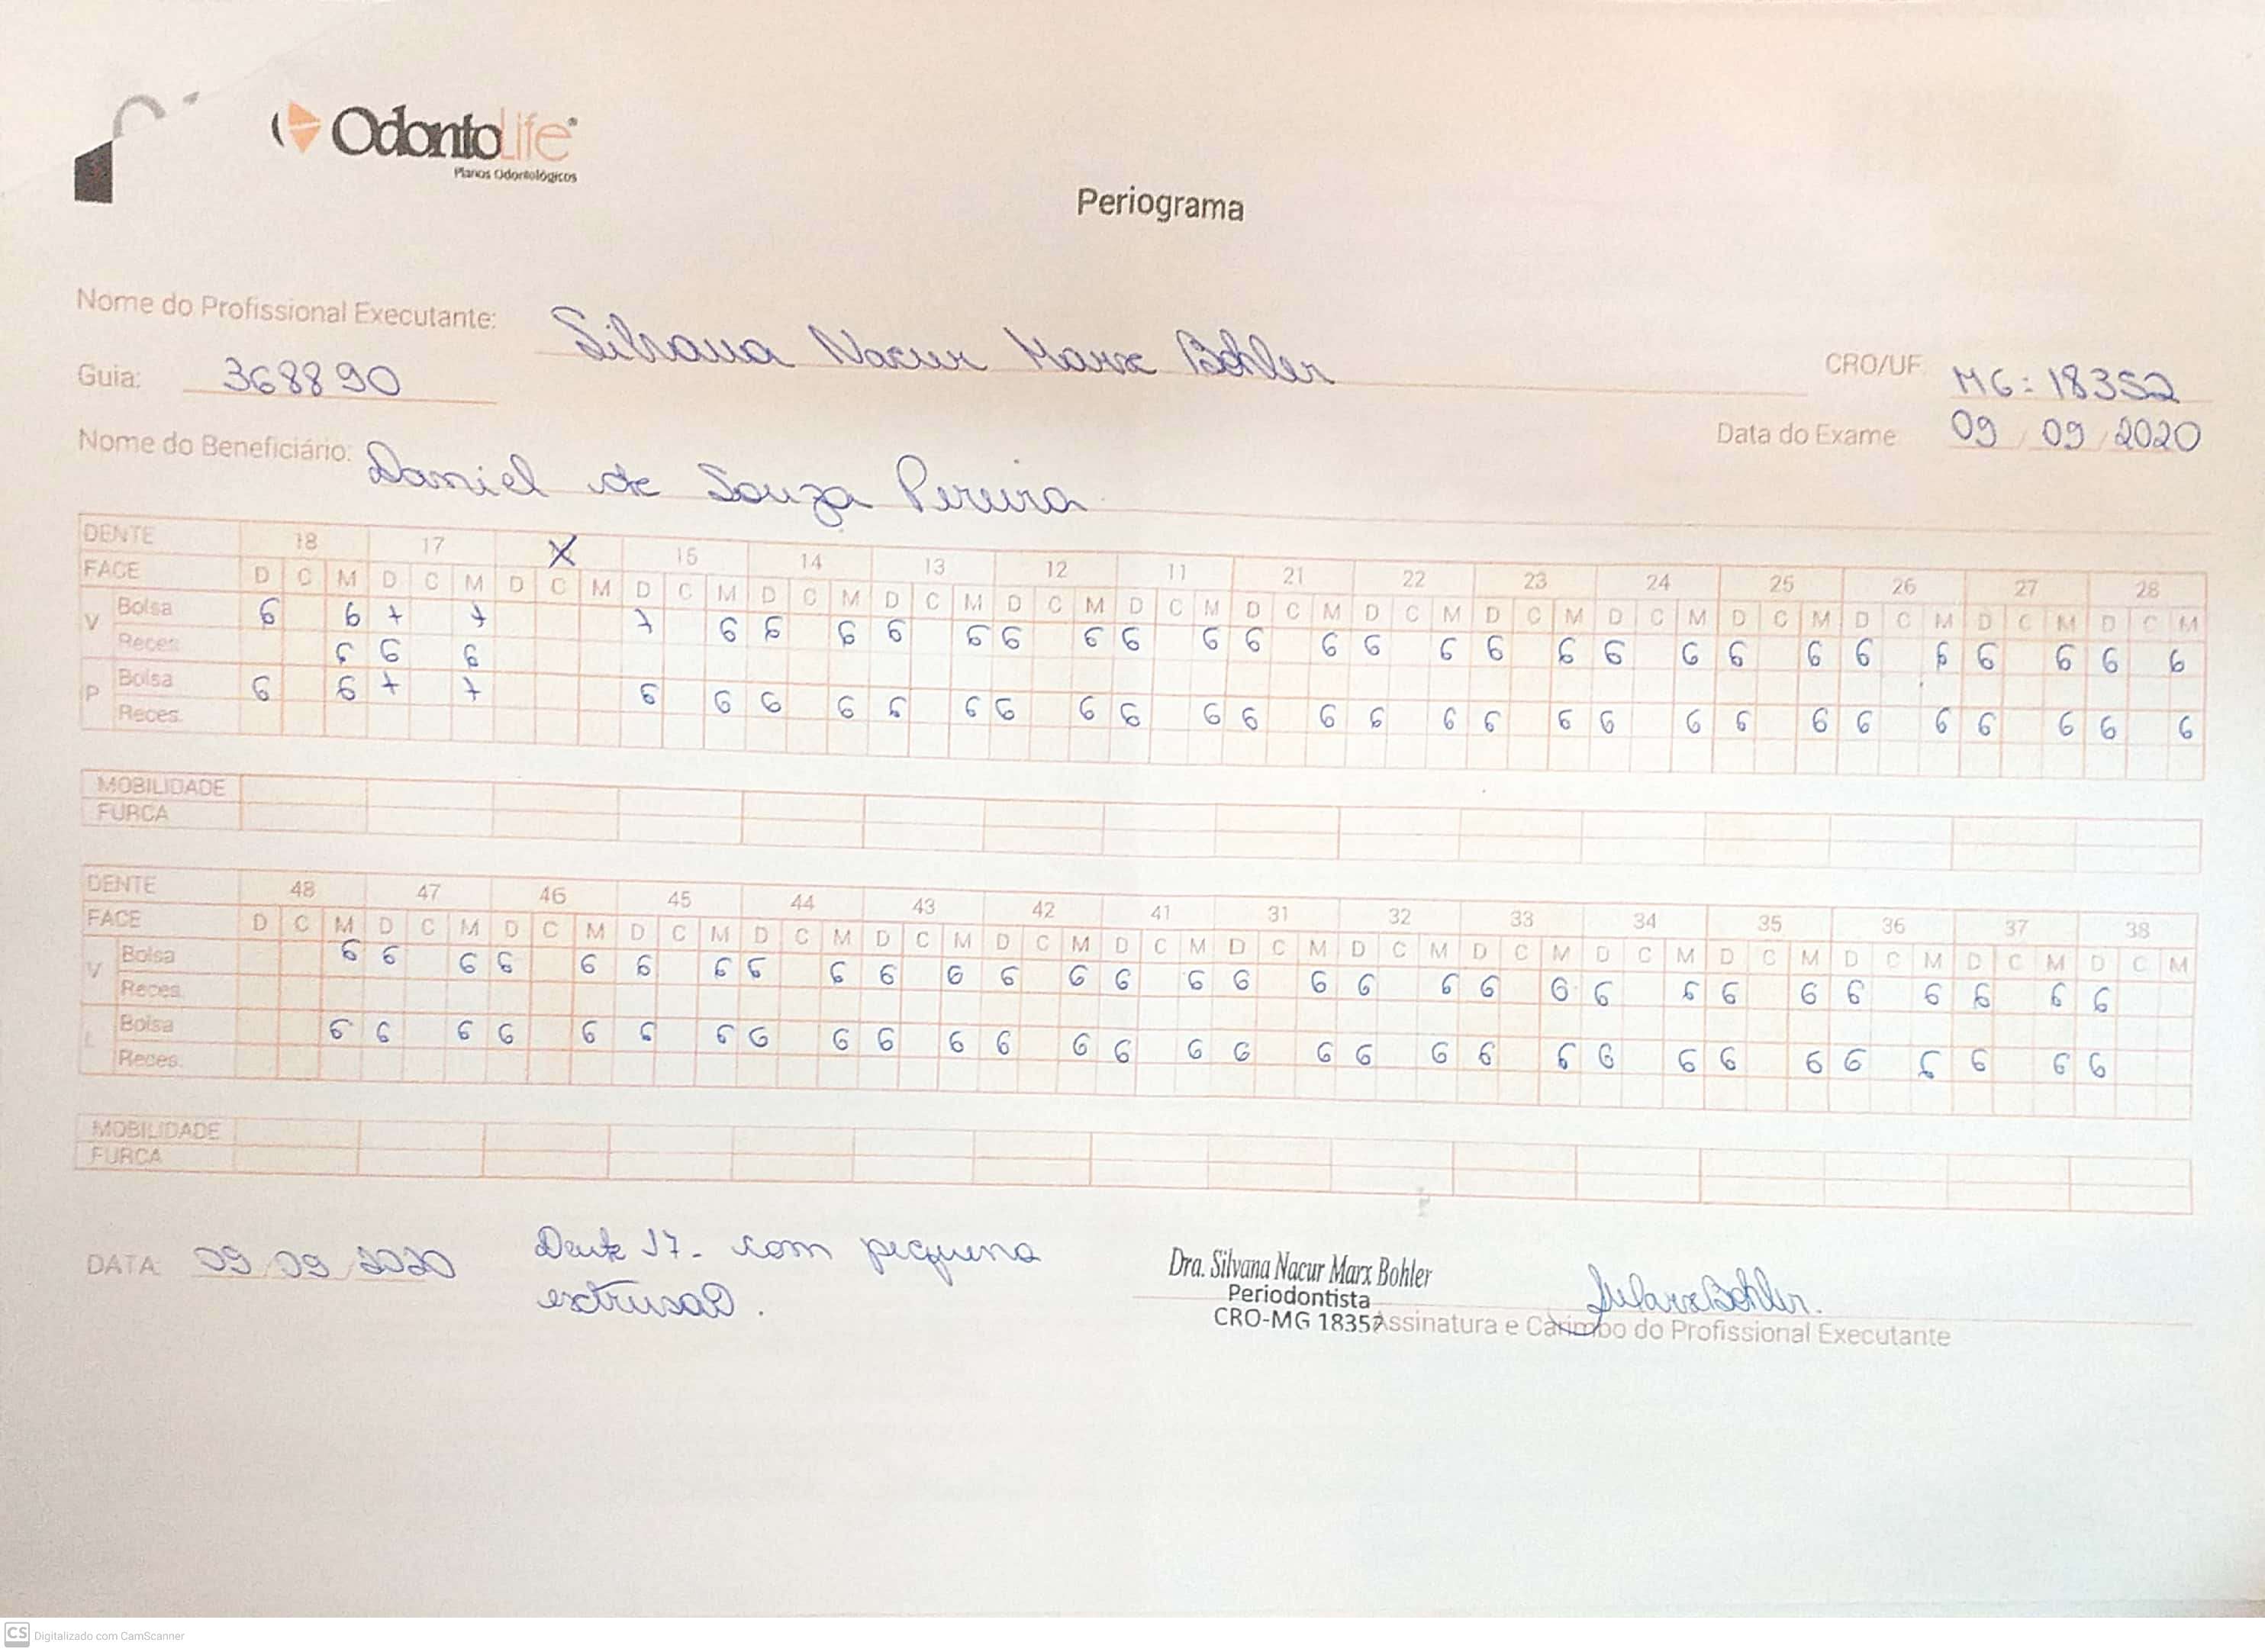 OdontoLife®
Planos Odontológicos
Periograma
Nome do Profissional Executante: Silvana Nacur Marx Bohler
Guia: 368890
CRO/UF MG: 18352
Data do Exame 09 / 09 / 2020
Nome do Beneficiário: Daniel de Souza Pereira
DENTE 18 17 X 15 14 13 12 11 21 22 23 24 25 26 27 28
FACE D C M D C M D C M D C M D C M D C M D C M D C M D C M D C M D C M D C M D C M D C M D C M D C M
V Bolsa 6 6 7 7 7 6 6 6 6 6 6 6 6 6 6 6 6 6 6 6 6 6 6 6 6 6 6 6 6 6
Reces. 6 6 6
P Bolsa 6 6 7 7 6 6 6 6 6 6 6 6 6 6 6 6 6 6 6 6 6 6 6 6 6 6 6 6 6 6
Reces.
MOBILIDADE
FURCA
DENTE 48 47 46 45 44 43 42 41 31 32 33 34 35 36 37 38
FACE D C M D C M D C M D C M D C M D C M D C M D C M D C M D C M D C M D C M D C M D C M D C M D C M
V Bolsa 6 6 6 6 6 6 6 6 6 6 6 6 6 6 6 6 6 6 6 6 6 6 6 6 6 6 6 6 6 6
Reces.
L Bolsa 6 6 6 6 6 6 6 6 6 6 6 6 6 6 6 6 6 6 6 6 6 6 6 6 6 6 6 6 6 6
Reces.
MOBILIDADE
FURCA
DATA: 09 / 09 / 2020
Dente 17 - com pequena
extrusão.
Dra. Silvana Nacur Marx Bohler
Periodontista
CRO-MG 18352
Assinatura e Carimbo do Profissional Executante
CS Digitalizado com CamScanner